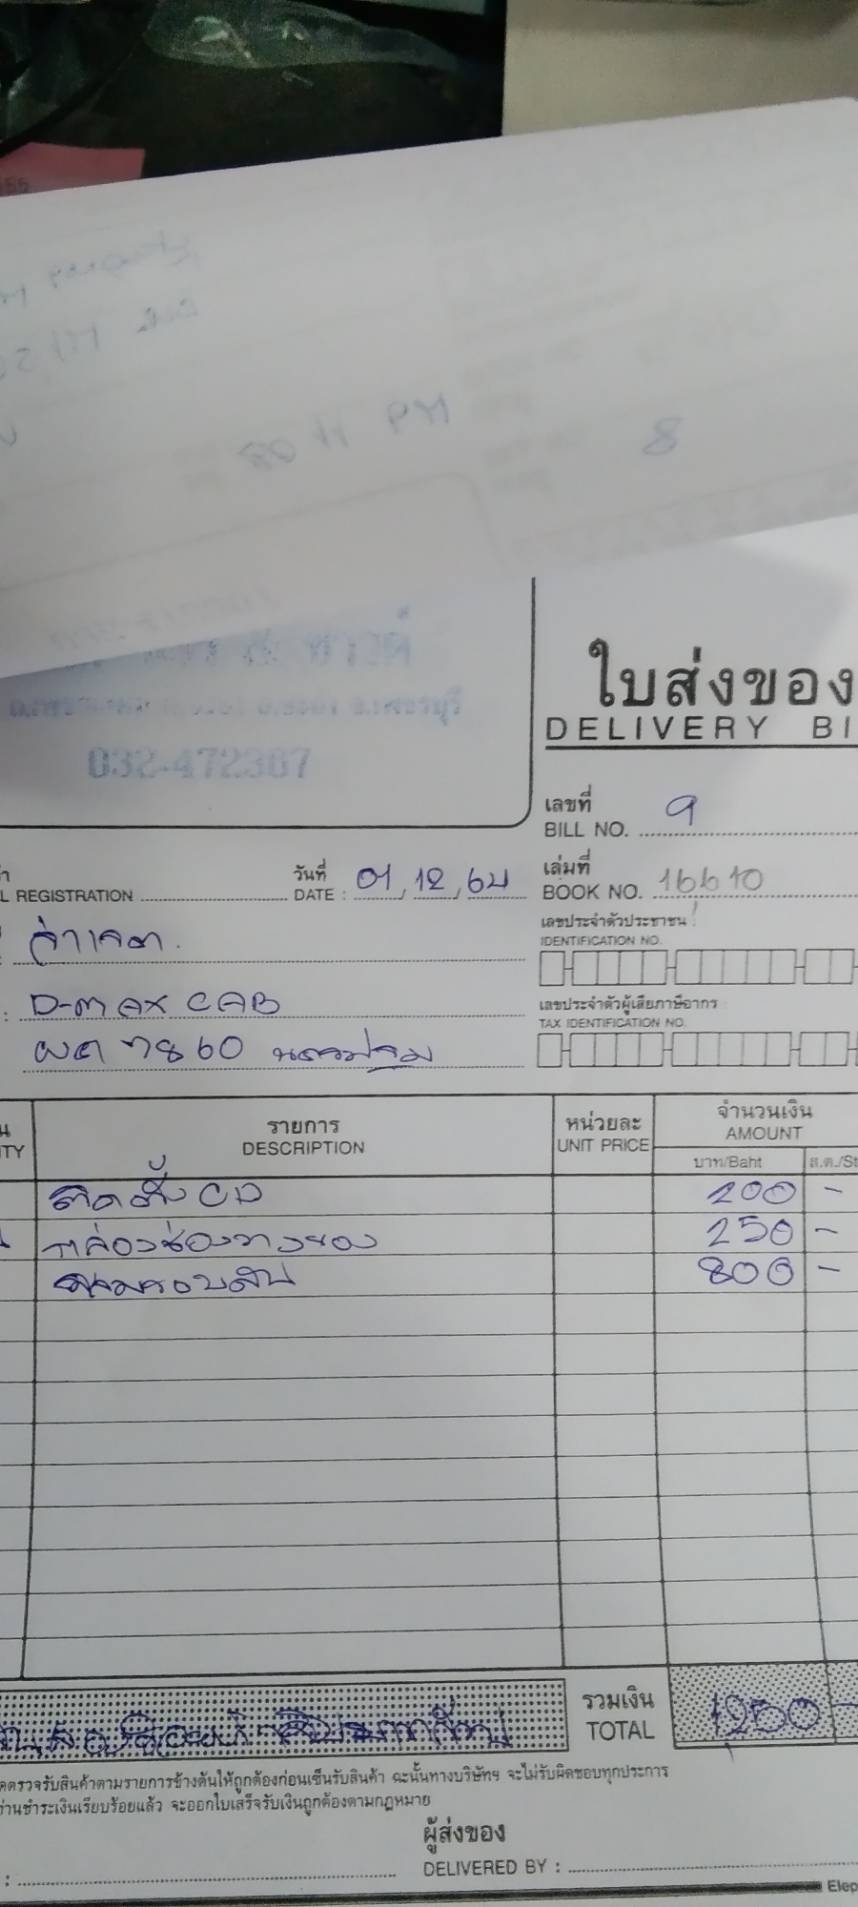 032-472307
ใบส่งของ
DELIVERY BI
เลขที่
BILL NO. 9
วันที่
L REGISTRATION
DATE : 01, 12, 64
เล่มที่
BOOK NO. 16610
เลขประจำตัวประชาชน
IDENTIFICATION NO.
D-max CAB
เลขประจำตัวผู้เสียภาษีอากร
TAX IDENTIFICATION NO.
ผต 7860 นครปฐม
TY
รายการ
DESCRIPTION
หน่วยละ
UNIT PRICE
จำนวนเงิน
AMOUNT
บาท/Baht
ส.ต./St
ติดตั้ง CD 200 -
กล่องช่องวางของ 250 -
800 -
รวมเงิน
TOTAL
1250 -
ตรวจรับสินค้าตามรายการข้างต้นให้ถูกต้องก่อนเซ็นรับสินค้า ฉะนั้นทางบริษัทฯ จะไม่รับผิดชอบทุกประการ
ท่านชำระเงินเรียบร้อยแล้ว จะออกใบเสร็จรับเงินถูกต้องตามกฎหมาย
ผู้ส่งของ
DELIVERED BY :
Elep